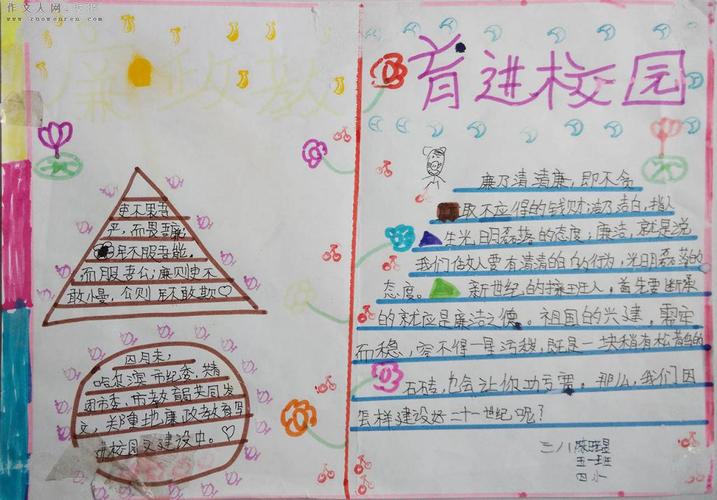 作文人网
www.zuowenren.com
廉政教
育进校园
吏不畏吾
严,而畏吾廉
民不服吾能,
而服吾公;廉则吏不
敢慢,公则民不敢欺♡
四月末,
哈尔滨市纪委、
团市委、市教育局共同发
文,郑重地廉政教育
进校园 建设中。♡
廉乃清清廉,即不贪
取不应得的钱财;洁乃洁白,指人
生光明磊落的态度,廉洁,就是说
我们做人要有清清的白的行为,光明磊落的
态度。新世纪的接班人,首先要
的就应是廉洁之德。祖国的兴建,需牢
而稳,容不得一星污秽,既是一块稍有松
石砖,也会让你功亏
那么,我们又因
怎样建设好二十一世纪呢?
三八
五一班
四小